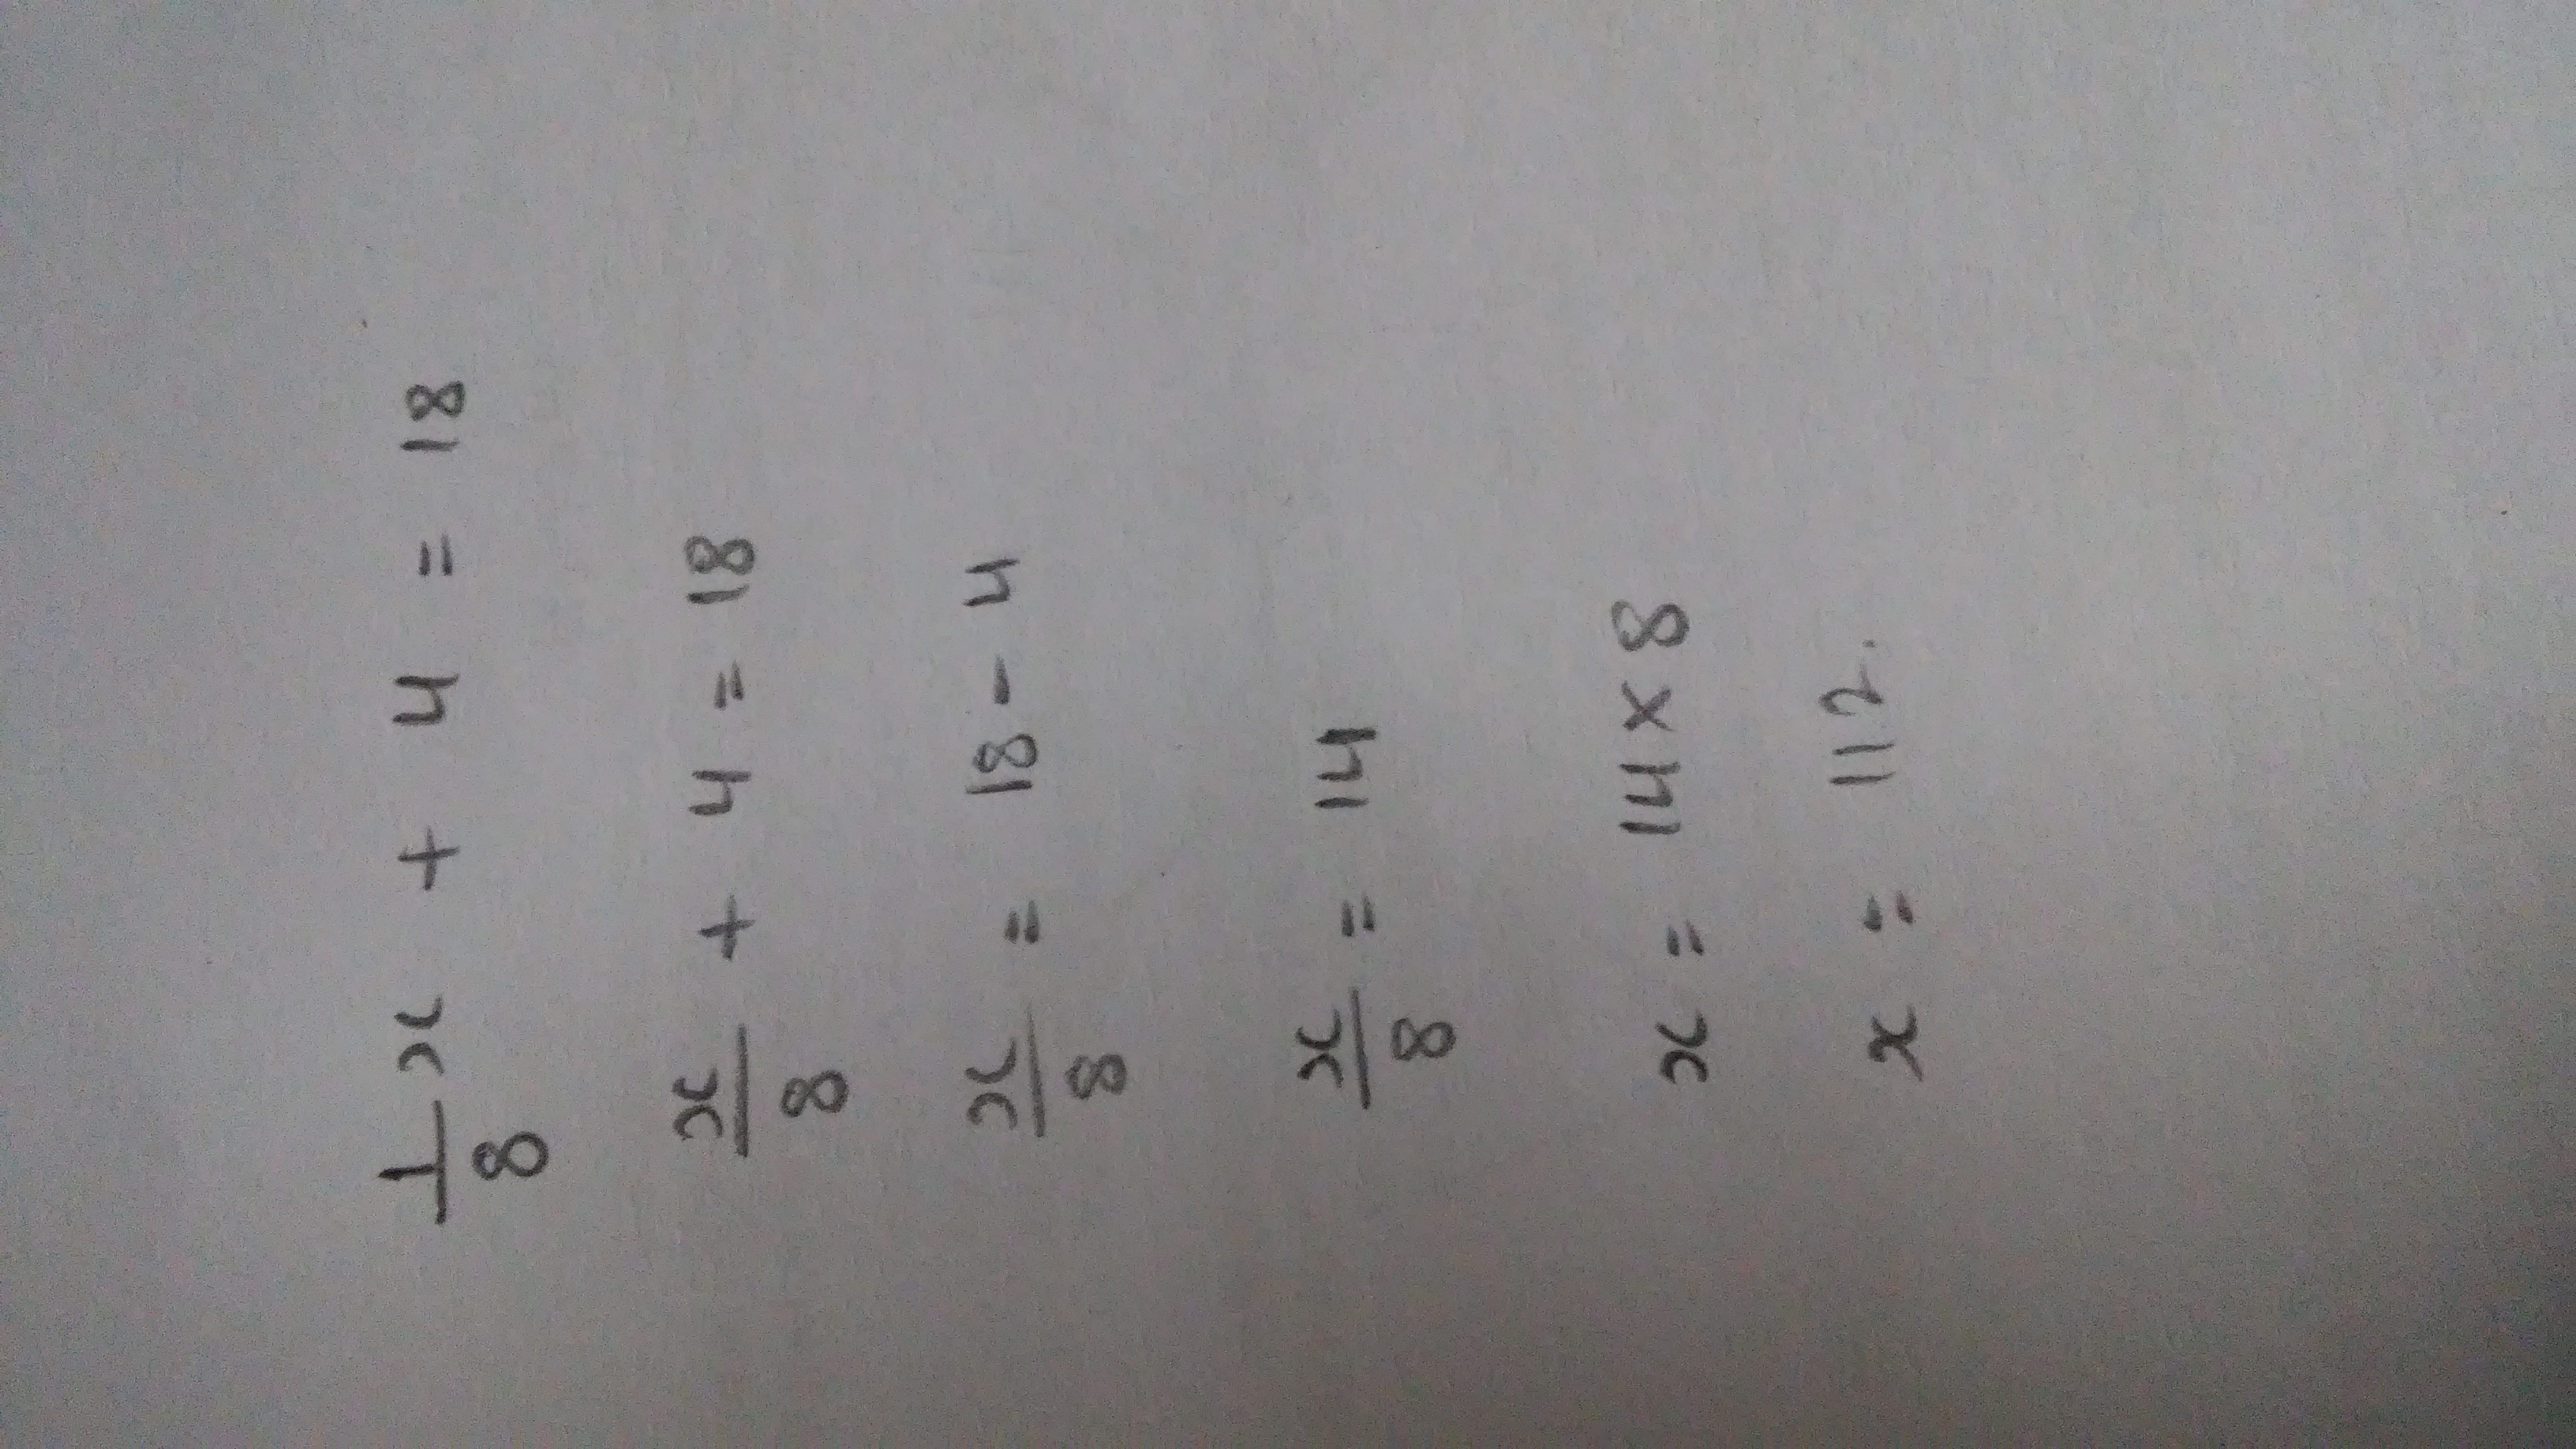 1/8 x + 4 = 18
x/8 + 4 = 18
x/8 = 18 - 4
x/8 = 14
x = 14 × 8
x = 112.